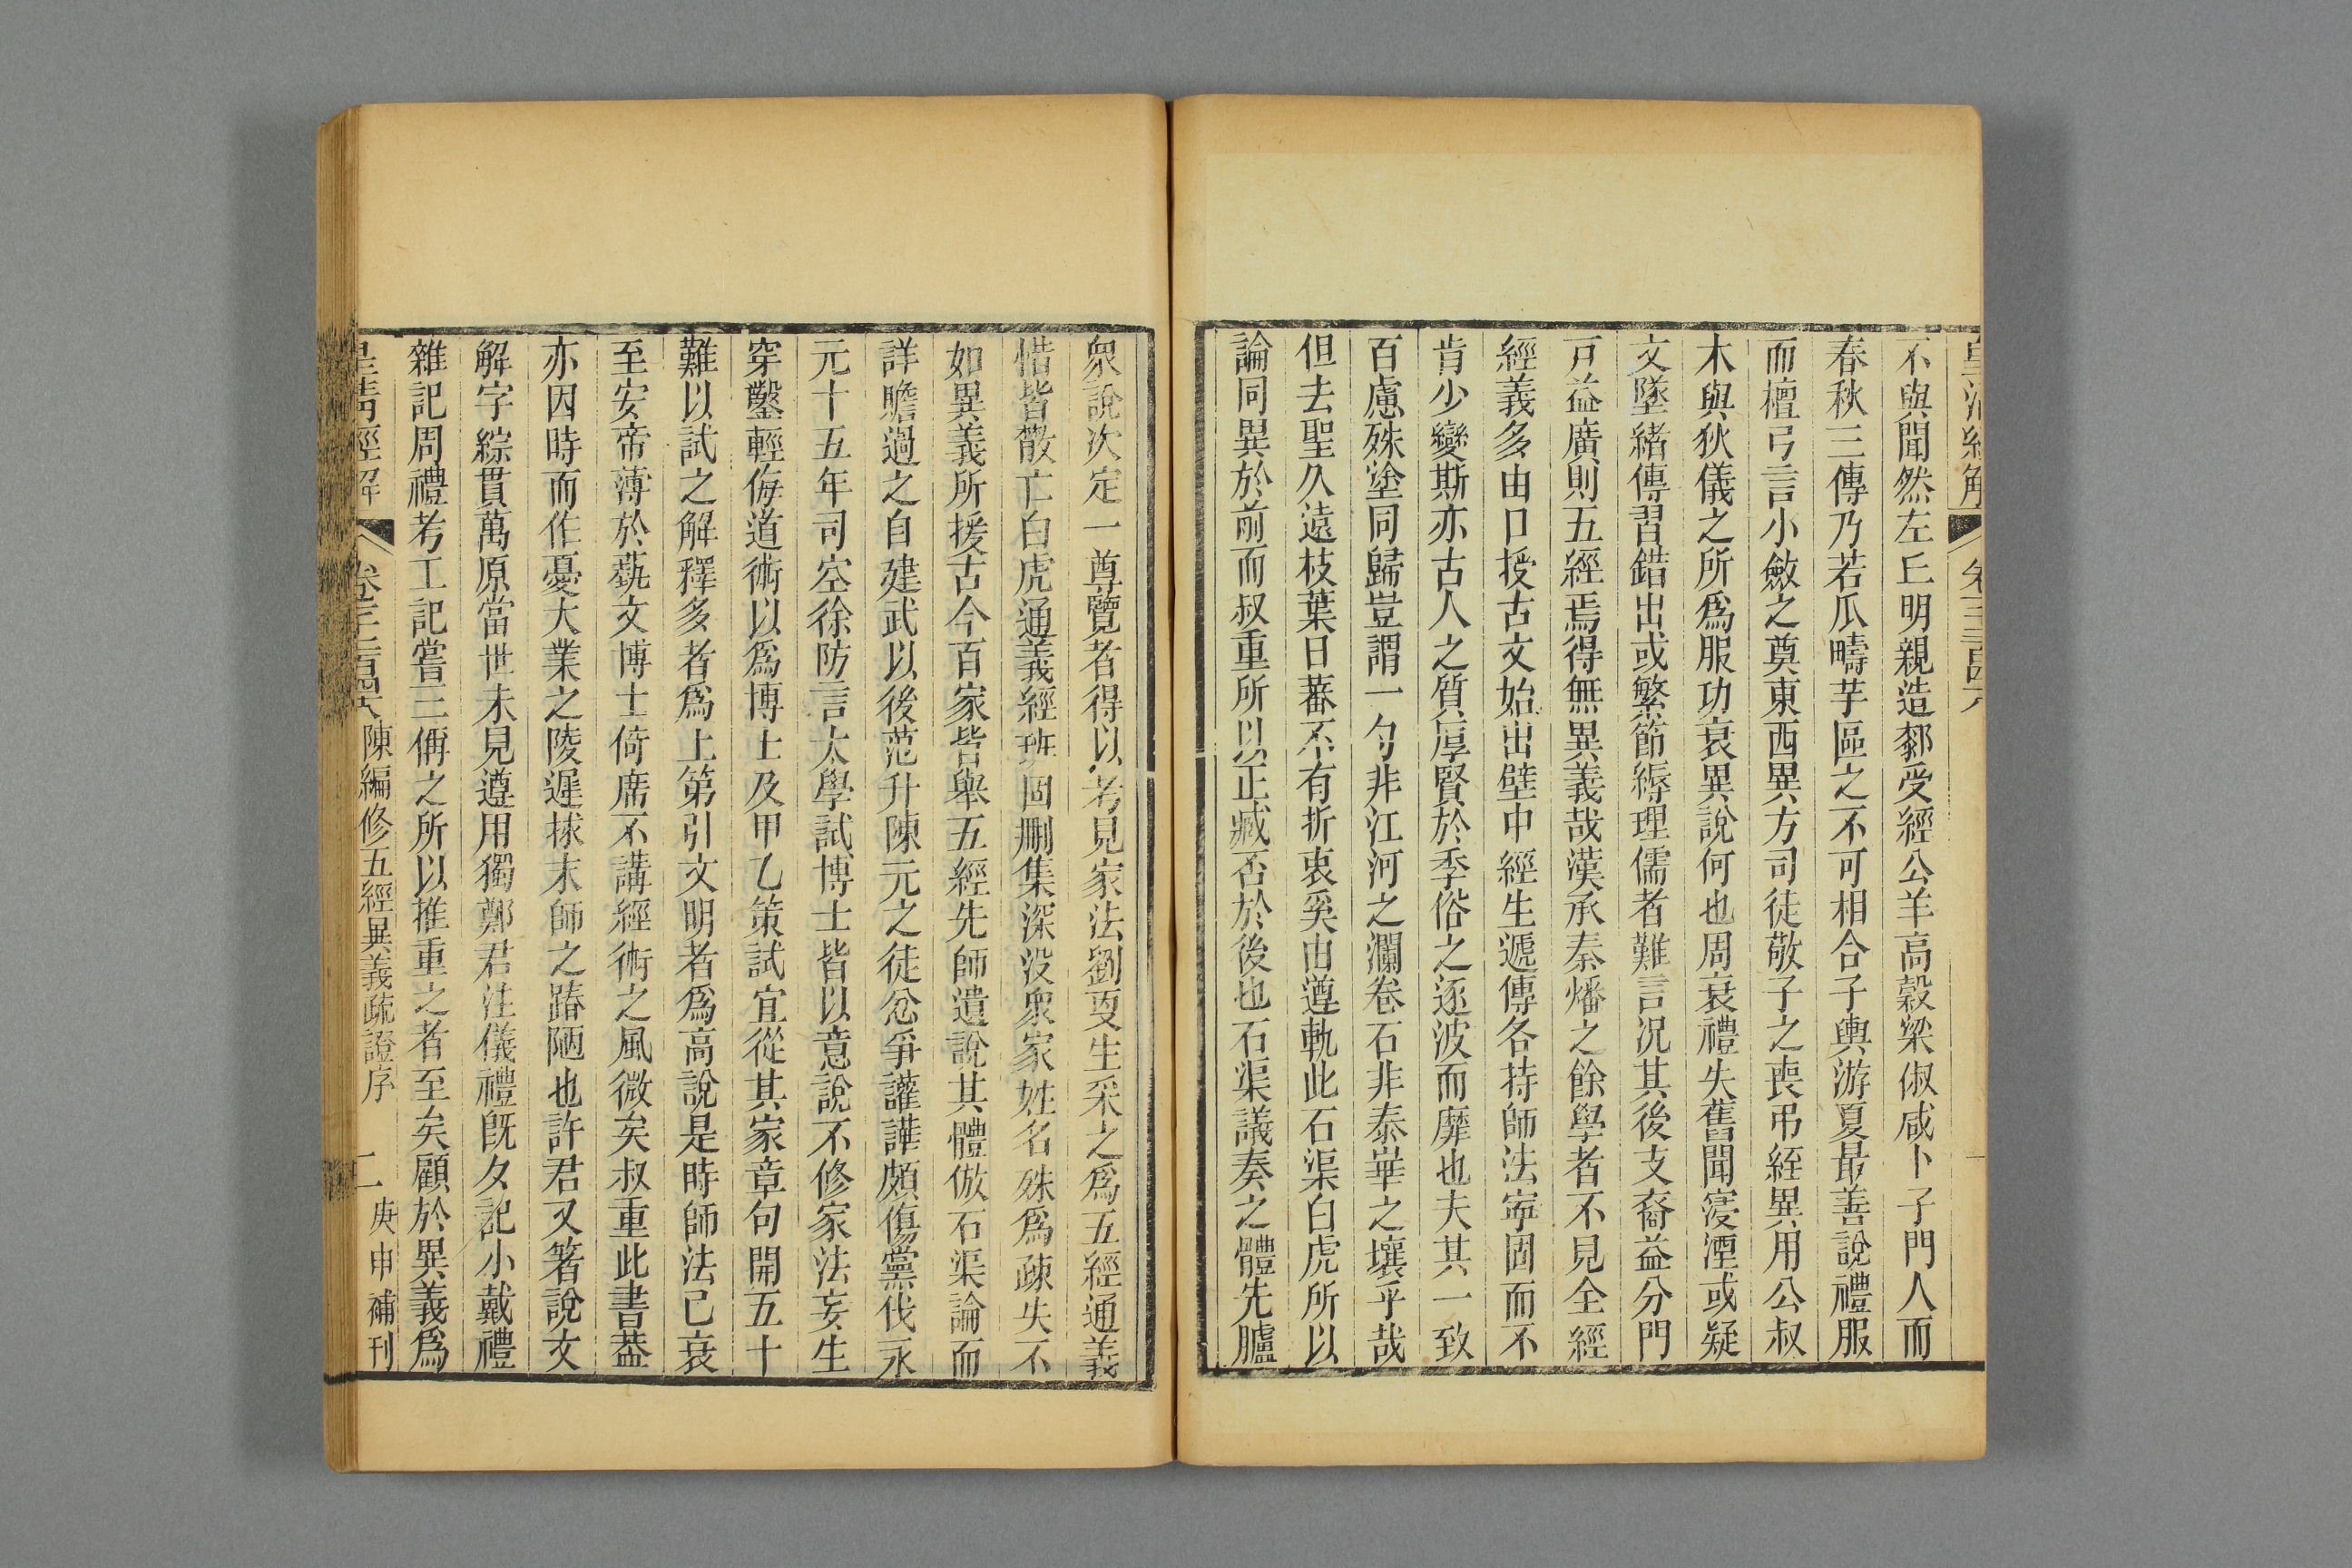 不與聞然左丘明親造䣛受經公羊高穀梁俶咸卜子門人而
春秋三傳乃若瓜疇芋區之不可相合子輿游夏最善說禮服
而檀弓言小斂之奠東西異方司徒敬子之喪弔絰異用公叔
木與狄儀之所爲服功衰異說何也周衰禮失舊聞寖湮或疑
文墜緒傳習錯出或繁節縟理儒者難言况其後支裔益分門
戸益廣則五經焉得無異義哉漢承秦燔之餘學者不見全經
經義多由口授古文始出壁中經生遞傳各持師法寧固而不
肯少變斯亦古人之質厚賢於季俗之逐波而靡也夫其一致
百慮殊塗同歸豈謂一勺非江河之瀾卷石非泰崋之壤乎哉
但去聖久遠枝葉日蕃不有折衷奚由遵軌此石渠白虎所以
論同異於前而叔重所以正臧否於後也石渠議奏之體先臚
衆說次定一尊覽者得以考見家法劉更生采之爲五經通義
惜皆散亡白虎通義經班固刪集深没衆家姓名殊爲疎失不
如異義所援古今百家皆舉五經先師遺說其體倣石渠論而
詳贍過之自建武以後范升陳元之徒忿爭讙譁頗傷黨伐永
元十五年司空徐防言太學試博士皆以意說不修家法妄生
穿鑿輕侮道術以爲博士及甲乙策試宜從其家章句開五十
難以試之解釋多者爲上第引文明者爲高說是時師法已衰
至安帝薄於蓺文博士倚席不講經術之風微矣叔重此書葢
亦因時而作憂大業之陵遲捄末師之踳陋也許君又箸說文
解字綜貫萬原當世未見遵用獨鄭君注儀禮旣夕記小戴禮
雜記周禮考工記嘗三偁之所以推重之者至矣顧於異義爲
皇清經解 卷千二百四十八 陳編修五經異義疏證序 二 庚申補刊